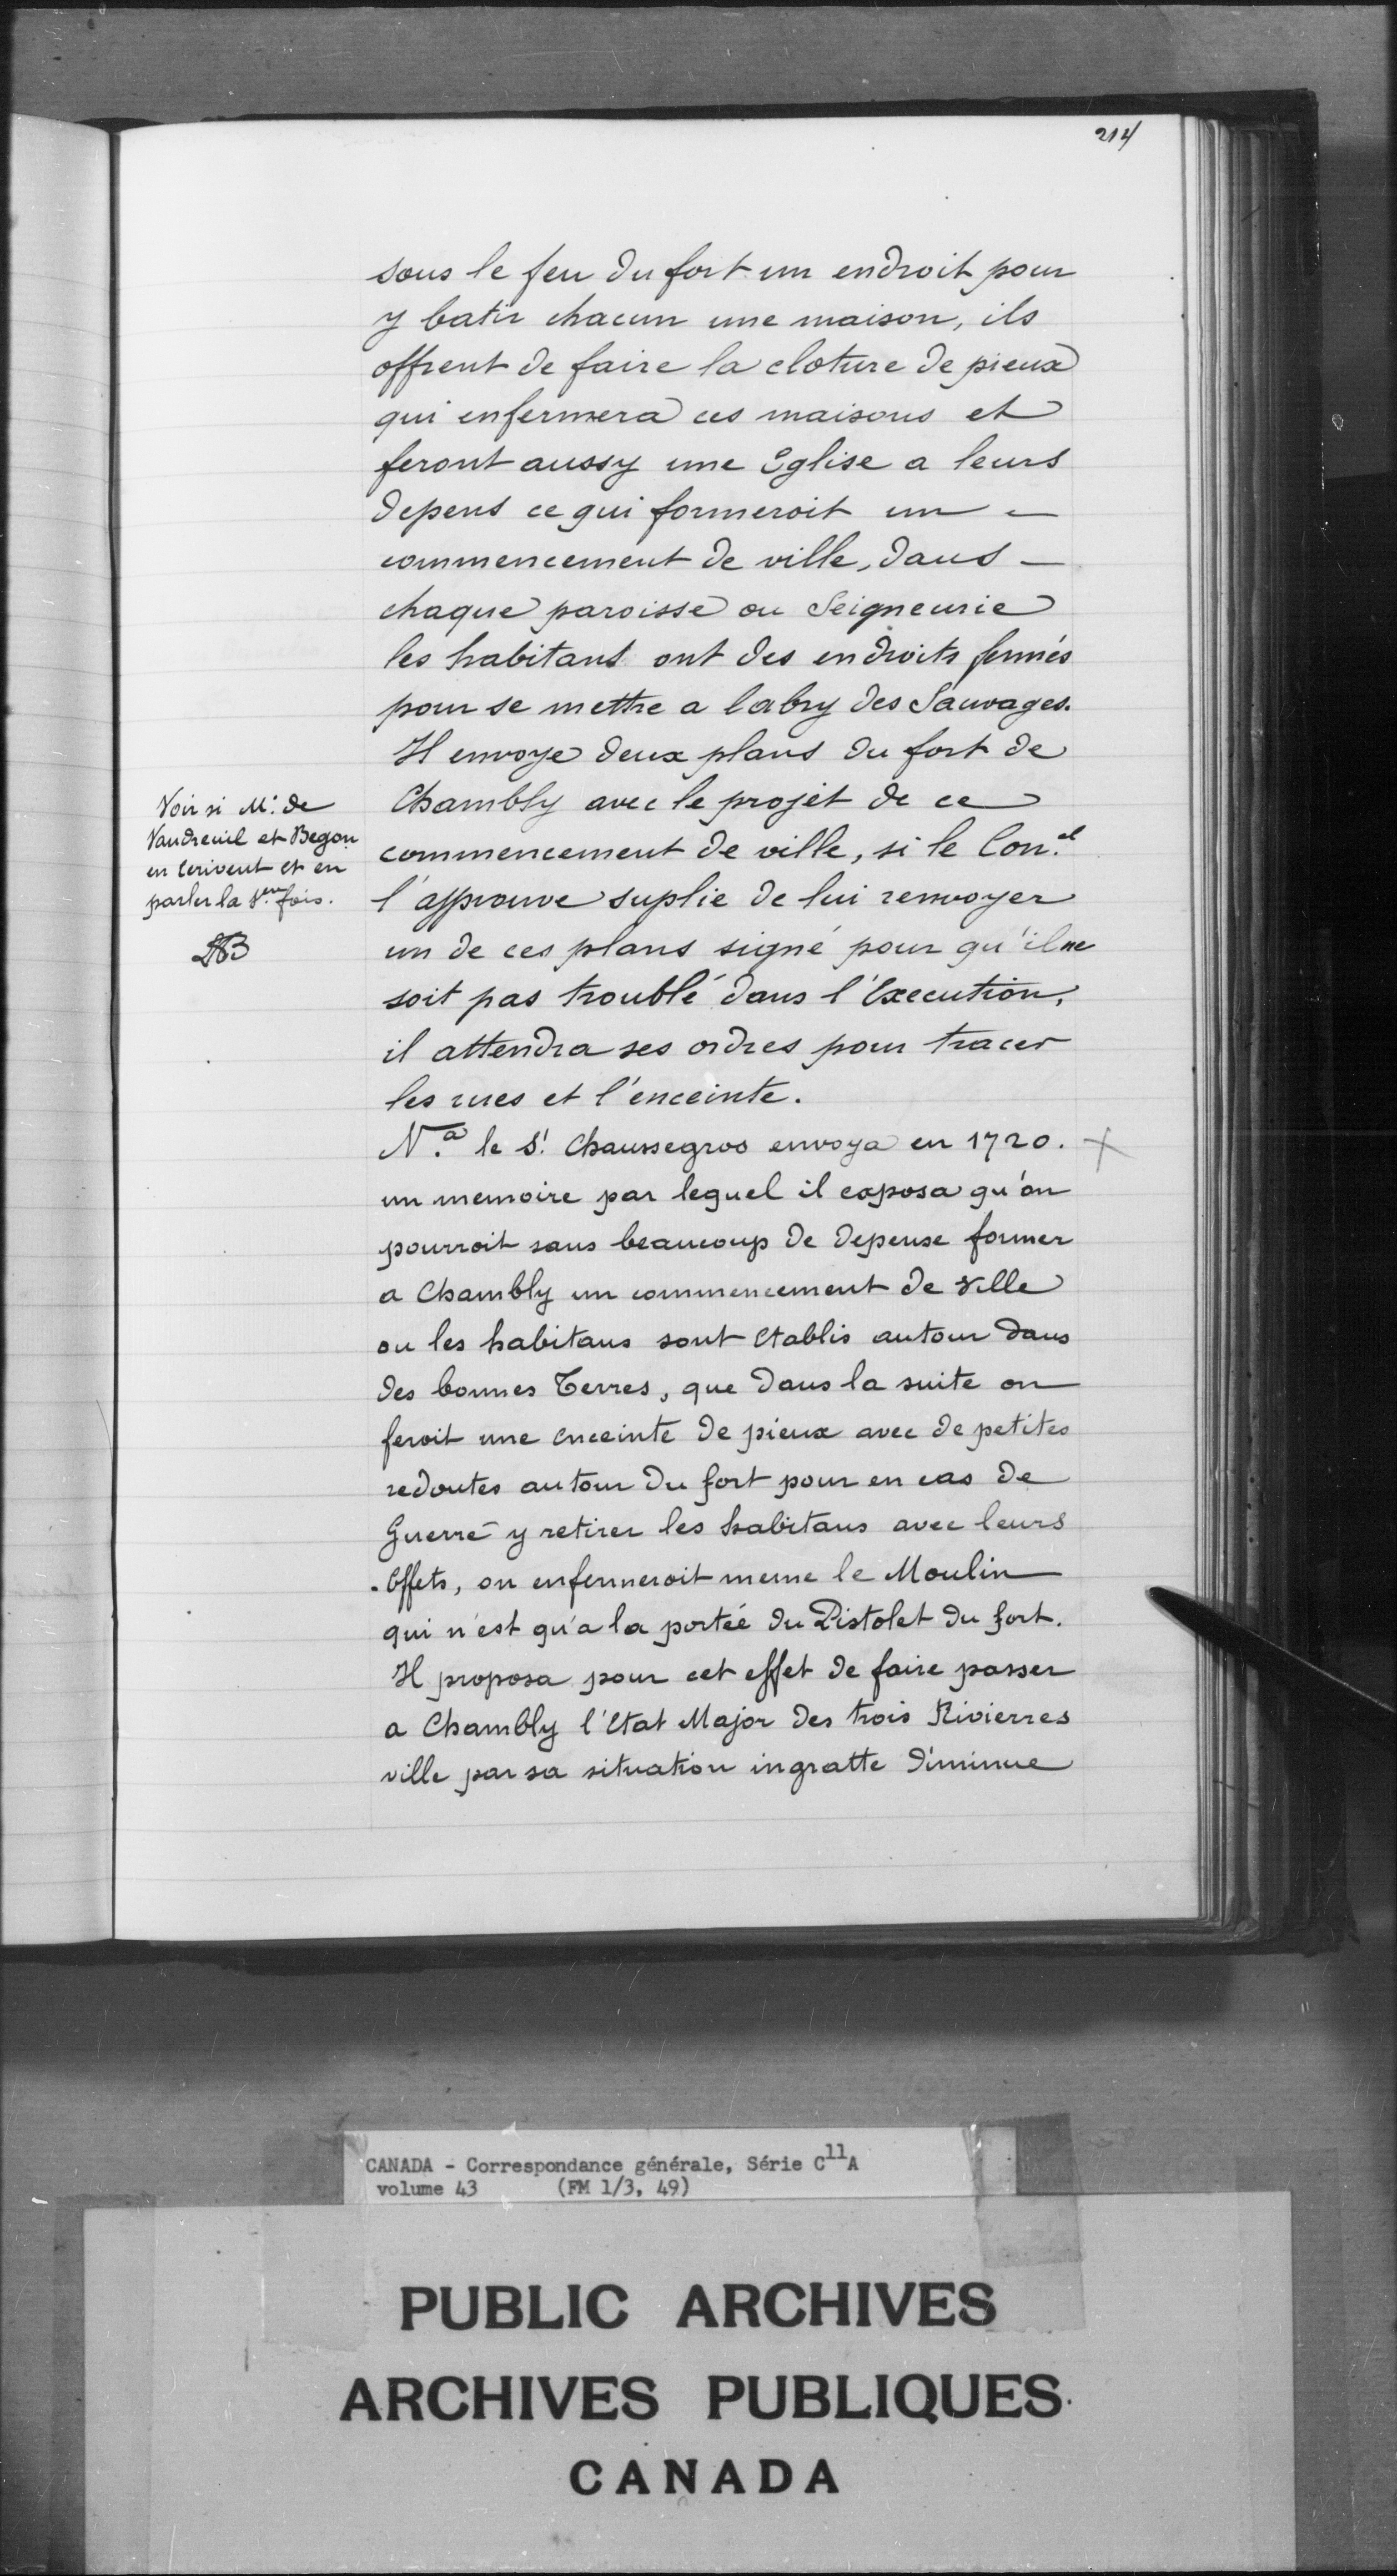 214
sous le feu du fort un endroit pour
y batir chacun une maison, ils
offrent de faire la cloture de pieux
qui enfermera ces maisons et
feront aussy une Eglise a leurs
depens ce qui formeroit un —
commencement de ville, dans —
chaque paroisse ou Seigneurie
les habitans ont des endroits fermés
pour se mettre a labry des Sauvages.
Il envoye deux plans du fort de
Chambly avec le projet de ce
commencement de ville, si le Con.el
l'approuve suplie de lui renvoyer
un de ces plans signé pour qu'il ne
soit pas troublé dans l'Execution,
il attendra ses ordres pour tracer
les rues et l'enceinte.
Voir si M.: de
Vaudreuil et Begon
en Ecrivent et en
parler la fois.
LAB
N.a le S.! Chaussegros envoya en 1720. +
un memoire par lequel il exposa qu'on
pourroit sans beaucoup de depense former
a Chambly un commencement de Ville
ou les habitans sont Etablis autour dans
des bonnes Terres, que dans la suite on
feroit une Enceinte de pieux avec de petites
redoutes autour du fort pour en cas de
Guerre y retirer les habitans avec leurs
Effets, on enfermeroit meme le Moulin
qui n'est qu'a la portée du Pistolet du fort.
Il proposa pour cet effet de faire passer
a Chambly l'Etat Major des trois Rivierres
ville par sa situation ingratte diminue
CANADA - Correspondance générale, Série C11A
volume 43 (FM 1/3, 49)
PUBLIC ARCHIVES
ARCHIVES PUBLIQUES
CANADA